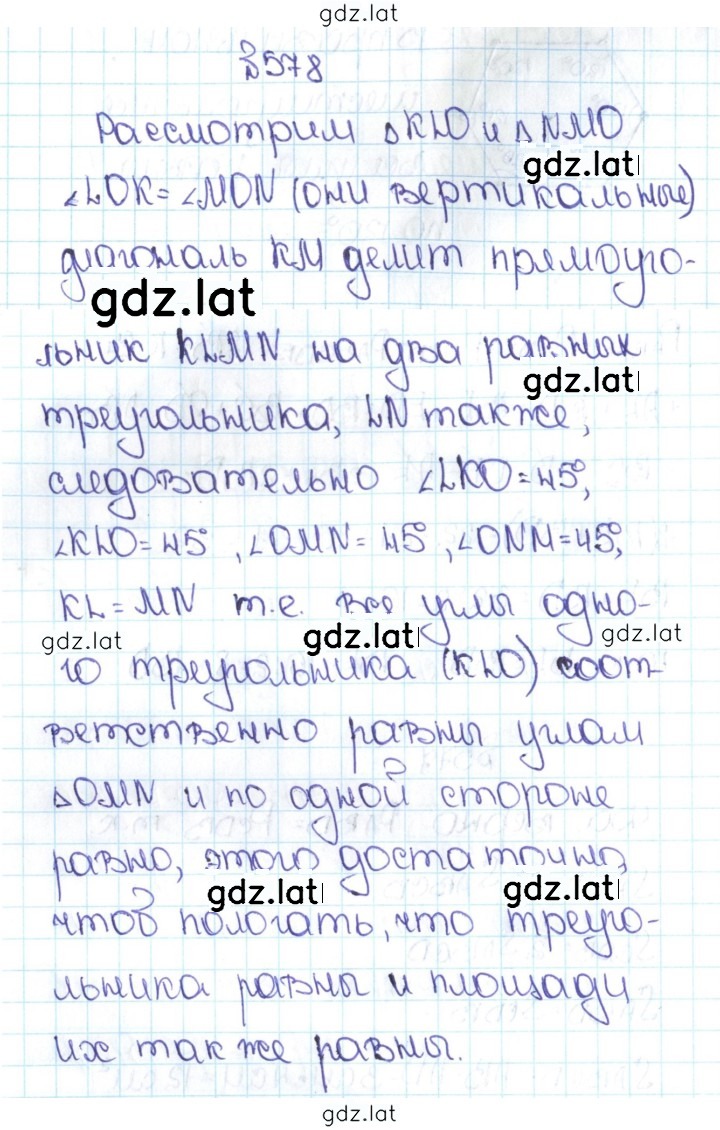 gdz.lat
№578
Рассмотрим △KLO и △NMO
gdz.lat
∠LOK = ∠MON (они вертикальные)
диагональ KM делит прямоуго-
gdz.lat
льник KLMN на два равных
gdz.lat
треугольника, LN также,
следовательно ∠LKO = 45°,
∠KLO = 45°, ∠OMN = 45°, ∠ONM = 45°,
KL = MN т.е. все углы одно-
gdz.lat gdz.lat gdz.lat
го треугольника (KLO) соот-
ветственно равны углам
△OMN и по одной стороне
равно, этого достаточно,
gdz.lat gdz.lat
чтоб пологать, что треуго-
льника равны и площади
их также равны.
gdz.lat